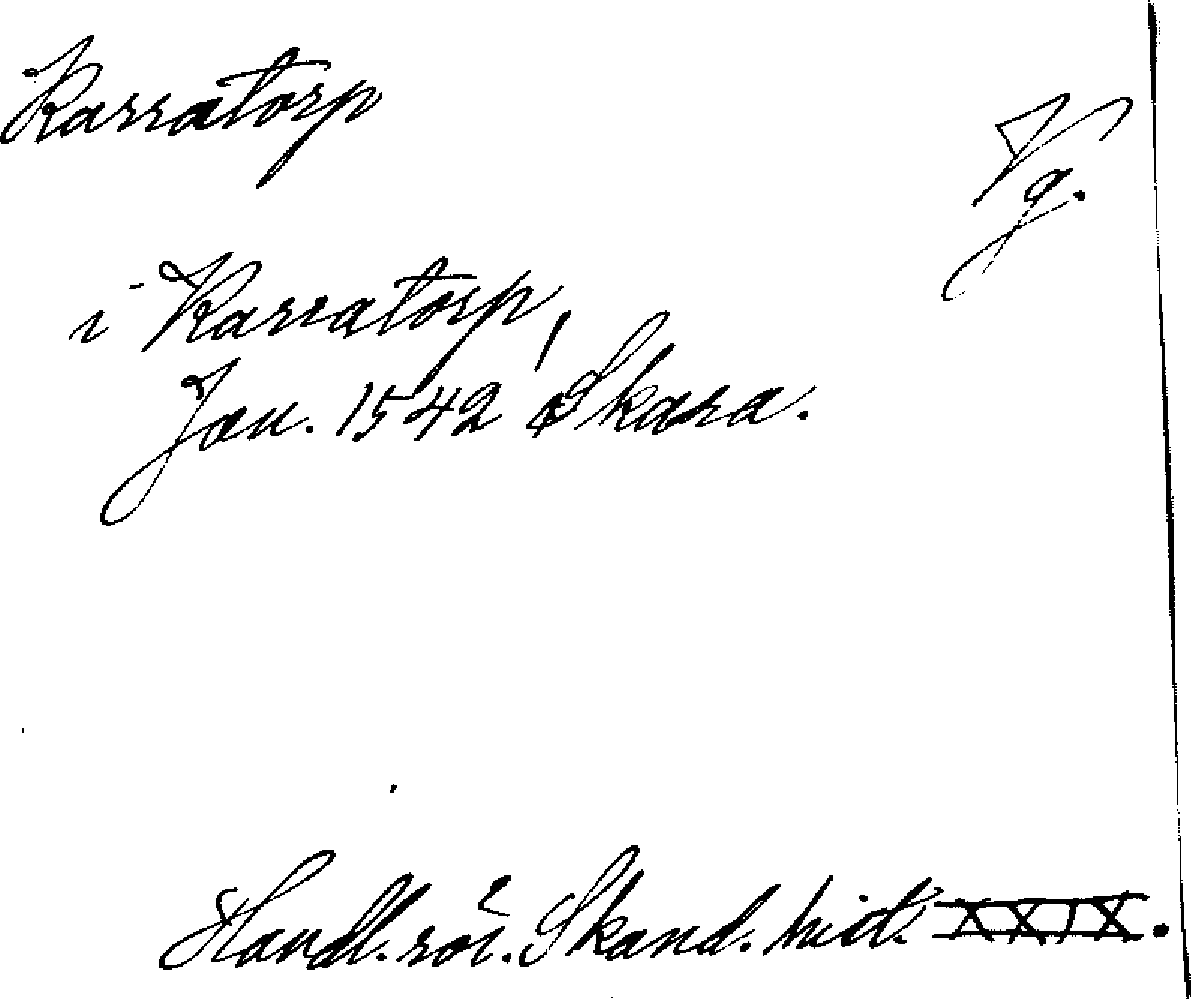 Karratorp
Vg.
i Karratorp,
Jan. 1542 Skara.
Handl. rör. Skand. hist. XXIX.